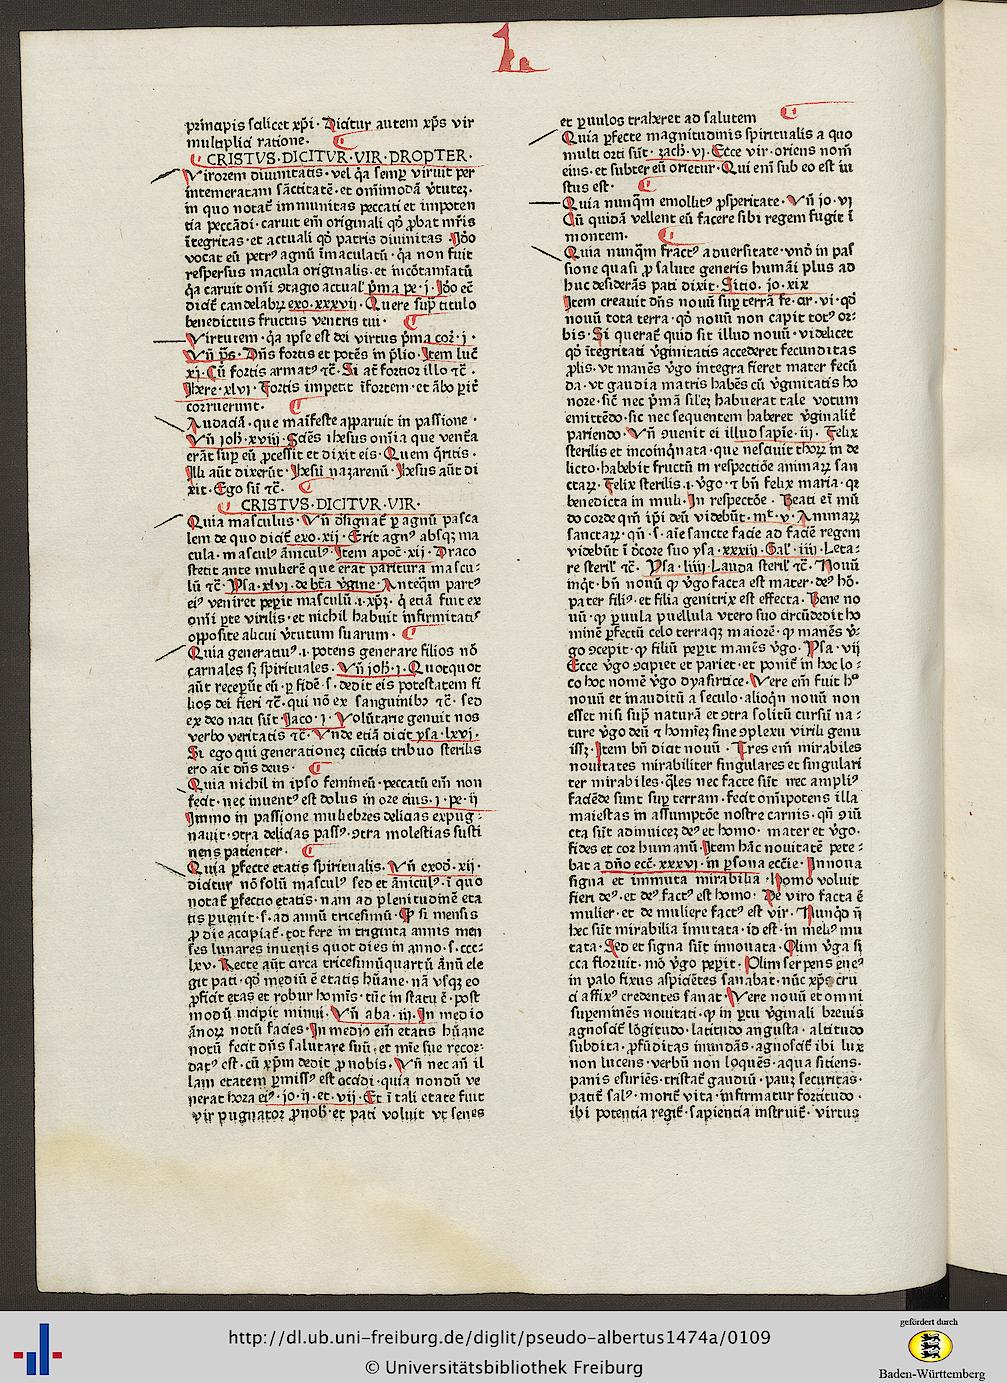 L
principis scilicet xp̄i · Dicitur autem xp̄s vir
multiplici ratione.
CRISTVS·DICITVR·VIR·PROPTER·
Virorem diuinitatis · vel q̄a semp̄ viruit per
intemeratam sāctitatē · et om̄imodā v̄tutez·
in quo notat̄ immunitas peccati et impoten
tia peccādi · caruit em̄ originali qd̄ ꝓbat mr̄is
ītegritas · et actuali qd̄ patris diuinitas · Ido
vocat eū petrꝰ agnū īmaculatū · q̄a non fuit
respersus macula originalis · et incōtamīatū
q̄a caruit om̄i ꝯtagio actual̄ p̄ma pe · j · Ido eē
dicit̄ candelabꝝ exo · xxxvij · Quere sup̄ titulo
benedictus fructus ventris tui ·
Virtutem · q̄a ip̄se est dei virtus p̄ma cor̄ · j ·
Vn̄ p̄s · Dn̄s fortis et potēs in p̄lio · Item luc̄
xj · Cū fortis armatꝰ ⁊c̄ · Si at̄ fortior illo ⁊c̄ ·
Jhere · xlvj · Fortis impetit īfortem · et ābo p̄it̄
corruerunt ·
Audaciā · que maīfeste apparuit in passione ·
Vn̄ joh̄ · xviij · Sciēs ihesus om̄ia que vent̄a
erāt sup̄ eū ꝓcessit et dixit eis · Quem q̄ritis ·
Illi aūt dixerūt · Jhesū nazarenū · Jhesus aūt di
xit · Ego sū ⁊c̄ ·
CRISTVS·DICITVR·VIR·
Quia masculus · Vn̄ dsignat̄ ꝑ agnū pasca
lem de quo dicit̄ exo · xij · Erit agnꝰ absqꝫ ma
cula · masculꝰ āniculꝰ · Item apoc̄ · xij · Draco
stetit ante mulierē que erat paritura mascu-
lū ⁊c̄ · Ysa · xlvj · de bt̄a v̄gine · Anteq̄m partꝰ
eiꝰ veniret pep̄it masculū · i · xp̄ꝫ · q̄ etiā fuit ex
om̄i ꝑte virilis · et nichil habuit infirmitatꝭ
opposite alicui v̄tutum suarum ·
Quia generatiuꝰ · i · potens generare filios nō
carnales sꝫ spirituales · Vn̄ joh̄ · j · Quotquot
aūt receꝑūt eū · ꝑ fidē · s · dedit eis potestatem fi
lios dei fieri ⁊c̄ · qui nō ex sanguinibꝫ ⁊c̄ · sed
ex deo nati sūt · Jaco · j · Volūtarie genuit nos
verbo veritatis ⁊c̄ · Vnde etiā dicit ysa · lxvj ·
Si ego qui generationeꝫ cūctis tribuo sterilis
ero ait dn̄s deus ·
Quia nichil in ip̄so femineū · peccatū em̄ non
fecit · nec inuentꝰ est dolus in ore eius · j · pe · ij
Immo in passione muliebres delicias expug-
nauit · ꝯtra delicias passꝰ · ꝯtra molestias susti
nens patienter ·
Quia ꝑfecte etatis spiritualis · Vn̄ exod̄ · xij ·
dicitur nō solū masculꝰ sed et āniculꝰ · ī quo
notat̄ ꝑfectio etatis · nam ad plenitudinē eta
tis ꝑuenit · s · ad annū tricesimū · Qꝫ si mensis
ꝓ die accipiat̄ · tot fere in triginta annis men
ses lunares inuenis quot dies in anno · s · ccc-
lxv · Recte aūt circa tricesimūquartū ānū ele
git pati · qd̄ mediū ē etatis hūane · nā vsqꝫ eo
ꝓficit etas et robur homīs · tūc in statu ē · post
modū incipit minui · Vn̄ aba · iij · In medio
ānorꝝ notū facies · In medio em̄ etatis hūane
notū fecit dn̄s salutare suū · et mīe sue recor-
datꝰ est · cū xp̄m dedit ꝓ nobis · Vn̄ nec an̄ il
lam etatem ꝑmissꝰ est occidi · quia nondū ve
nerat hora eiꝰ · jo · ij · et · vij · Et ī tali etate fuit
vir pugnator ꝓ nob̄ · et pati voluit vt senes
et ꝑuulos traheret ad salutem
Quia ꝑfecte magnitudinis spiritualis a quo
multi orti sūt · zach̄ · vj · Ecce vir · oriens nom̄
eius · et subter eū orietur · Qui em̄ sub eo est iu
stus est ·
Quia nunq̄m emollitꝰ ꝓsperitate · Vn̄ jo · vj
Cū quidā vellent eū facere sibi regem fugit ī
montem ·
Quia nunq̄m fractꝰ aduersitate · vnd̄ in pas
sione quasi ꝓ salute generis humāi plus ad
huc desiderās pati dixit · Sitio · jo · xix
Item creauit dn̄s nouū sup̄ terrā fe · cir · vi · qd̄
nouū tota terra · qd̄ nouū non capit totꝰ or-
bis · Si querat̄ quid sit illud nouū · videlicet
qd̄ ītegritati v̄ginitatis accederet fecunditas
ꝓlis · vt manēs v̄go integra fieret mater fecū
da · vt gaudia matris habēs cū v̄ginitatis ho
nore · sic̄ nec p̄mā sil̄eꝫ habuerat tale votum
emittēdo · sic nec sequentem haberet v̄ginalit̄
pariendo · Vn̄ ꝯuenit ei illud sapīe · iij · Felix
sterilis et incoinq̄nata · que nesciuit thoꝝ in de
licto · habebit fructū in respectiōe animaꝝ san
ctaꝝ · Felix sterilis · i · v̄go · ⁊ bn̄ felix maria · qꝛ
benedicta in muli · In respectōe · Beati eī mū
do corde qm̄ ip̄i deū videbūt · mt̄ · v · Animaꝝ
sanctaꝝ · qn̄ · s · aīe sancte facie ad faciē regem
videbūt ī dc̄ore suo ysa · xxxiij · Gal̄ · iiij · Leta-
re steril̄ ⁊c̄ · Ysa · liiij · Lauda steril̄ ⁊c̄ · Nouū
inq̄t · bn̄ nouū qꝫ v̄go facta est mater · deꝰ hō ·
pater filiꝰ · et filia genitrix est effecta · Bene no
uū · qꝫ ꝑuula puellula vtero suo circūdedit ho
minē ꝑfectū celo terraqꝫ maiorē · qꝫ manēs v̄-
go ꝯcepit · qꝫ filiū pep̄it manēs v̄go · Ysa · vij
Ecce v̄go ꝯcipiet et pariet · et ponit̄ in hoc lo-
co hoc nomē v̄go dyasirtice · Vere em̄ fuit hͦ
nouū et inauditū a seculo · alioq̄n nouū non
esset nisi sup̄ naturā et ꝯtra solitū cursū na-
ture v̄go deū ⁊ homīeꝫ sine ꝯplexu virili genu
issꝫ · Item bn̄ dicit nouū · Tres em̄ mirabiles
nouitates mirabiliter singulares et singulari
ter mirabiles · q̄les nec facte sūt nec ampliꝰ
faciēde sunt sup̄ terram · fecit om̄ipotens illa
maiestas in assumptōe nostre carnis · qn̄ ꝯiū
cta sūt adinuiceꝫ deꝰ et homo · mater et v̄go ·
fides et coꝛ humanū · Item hāc nouitatē pete-
bat a dn̄o ecc̄ · xxxvj · in ꝑsona ecc̄ie · Innoua
signa et immuta mirabilia · Homo voluit
fieri deꝰ · et deꝰ factꝰ est homo · De viro facta ē
mulier · et de muliere factꝰ est vir · Nunqd̄ n̄
hec sūt mirabilia īmutata · id est · in meliꝰ mu
tata · Sed et signa sūt innouata · Olim v̄ga si
cca floruit · mō v̄go pep̄it · Olim serpens eneꝰ
in palo fixus aspiciētes sanabat · nūc xp̄s cru
ci affixꝰ credentes sanat · Vere nouū et omni
suꝑeminēs nouitati · qꝫ in ꝑtu v̄ginali breuis
agnoscit̄ lōgitudo · latitudo angusta · altitudo
subdita · ꝓfūditas inundās · agnoscit̄ ibi lux
non lucens · verbū non loquēs · aqua sitiens ·
panis esuriēs · tristat̄ gaudiū · pauꝫ securitas ·
patit̄ salꝰ · morit̄ vita · infirmatur fortitudo ·
ibi potentia regit̄ · sapientia instruit̄ · virtus
http://dl.ub.uni-freiburg.de/diglit/pseudo-albertus1474a/0109
© Universitätsbibliothek Freiburg
gefördert durch
Baden-Württemberg